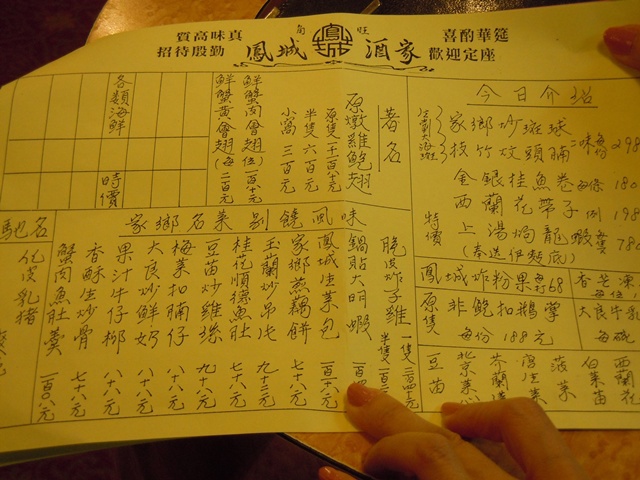 質高味真
招待殷勤
角 旺
鳳城 酒家
喜酌華筵
歡迎定座
今日介紹
家鄉炒斑球
枝竹炆頭腩
二味每份 298
金銀桂魚卷 每條 180
西蘭花帶子 例 198
上湯焗龍蝦 780
(奉送伊麵底)
特價
鳳城炸粉果 每打68
原隻
非鮑扣鵝掌
每份 188元
香芒凍
大良牛乳
西蘭花
白菜苗
菠菜
唐生菜
芥蘭
北京菜
豆苗
著名
原燉雞鮑翅
半隻 六百元
小窩 三百元
鮮蟹肉會翅
鮮蟹黃會翅 二百元
各類海鮮 時價
家鄉名菜別饒風味
脆皮炸子雞 一隻 半隻
鍋貼大明蝦
鳳城生菜包
家鄉煎藕餅 七十八元
玉蘭炒吊片 九十二元
桂花順德魚肚 七十八元
豆苗炒雞絲 九十八元
梅菜扣腩仔 八十八元
大良炒鮮奶 八十八元
果汁牛仔柳 八十八元
香酥生炒骨 七十八元
蟹肉魚肚羹 一百〇八元
馳名
化皮乳豬